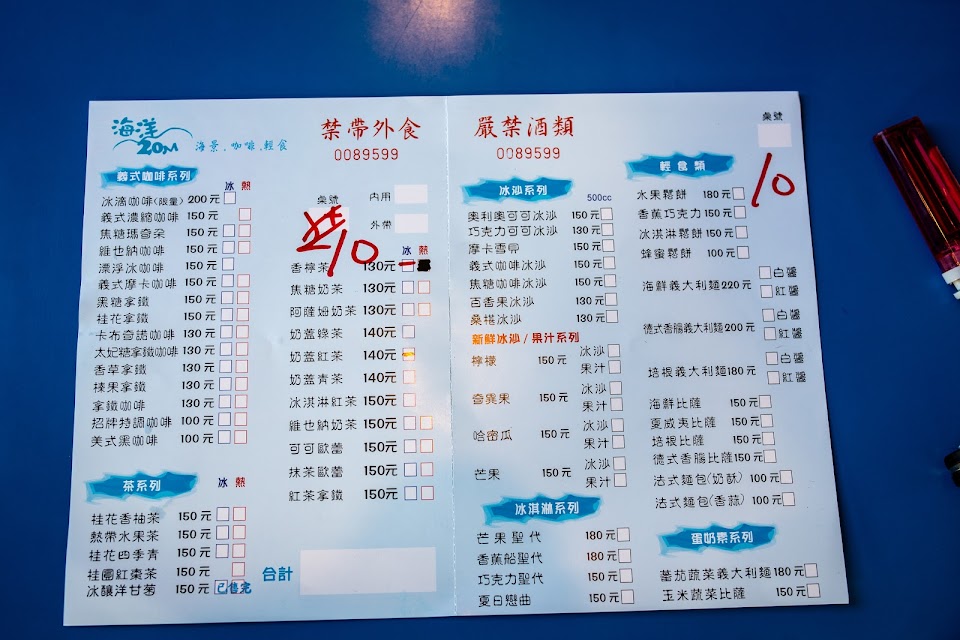 海洋
20M
海景.咖啡.輕食
禁帶外食
0089599
義式咖啡系列
冰 熱
冰滴咖啡(限量) 200元
義式濃縮咖啡 150元
焦糖瑪奇朵 150元
維也納咖啡 150元
漂浮冰咖啡 150元
義式摩卡咖啡 150元
黑糖拿鐵 150元
桂花拿鐵 150元
卡布奇諾咖啡 130元
太妃糖拿鐵咖啡 130元
香草拿鐵 130元
榛果拿鐵 130元
拿鐵咖啡 130元
招牌特調咖啡 100元
美式黑咖啡 100元
茶系列
冰 熱
桂花香柚茶 150元
熱帶水果茶 150元
桂花四季青 150元
桂圓紅棗茶 150元
冰釀洋甘菊 150元 已售完
桌號
內用
外帶
10
冰 熱
香檸茶 130元
焦糖奶茶 130元
阿薩姆奶茶 130元
奶蓋綠茶 140元
奶蓋紅茶 140元
奶蓋青茶 140元
冰淇淋紅茶 150元
維也納奶茶 150元
可可歐蕾 150元
抹茶歐蕾 150元
紅茶拿鐵 150元
合計
嚴禁酒類
0089599
冰沙系列
500cc
奧利奧可可冰沙 150元
巧克力可可冰沙 130元
摩卡雪俱 150元
義式咖啡冰沙 150元
焦糖咖啡冰沙 150元
百香果冰沙 130元
桑椹冰沙 130元
新鮮冰沙/果汁系列
檸檬 150元 冰沙
果汁
奇異果 150元 冰沙
果汁
哈密瓜 150元 冰沙
果汁
芒果 150元 冰沙
果汁
冰淇淋系列
芒果聖代 180元
香蕉船聖代 180元
巧克力聖代 150元
夏日戀曲 150元
桌號
10
輕食類
水果鬆餅 180元
香蕉巧克力 150元
冰淇淋鬆餅 150元
蜂蜜鬆餅 100元
海鮮義大利麵 220元 白醬
紅醬
德式香腸義大利麵 200元 白醬
紅醬
培根義大利麵 180元 白醬
紅醬
海鮮比薩 150元
夏威夷比薩 150元
培根比薩 150元
德式香腸比薩 150元
法式麵包(奶酥) 100元
法式麵包(香蒜) 100元
蛋奶素系列
蕃茄蔬菜義大利麵 180元
玉米蔬菜比薩 150元